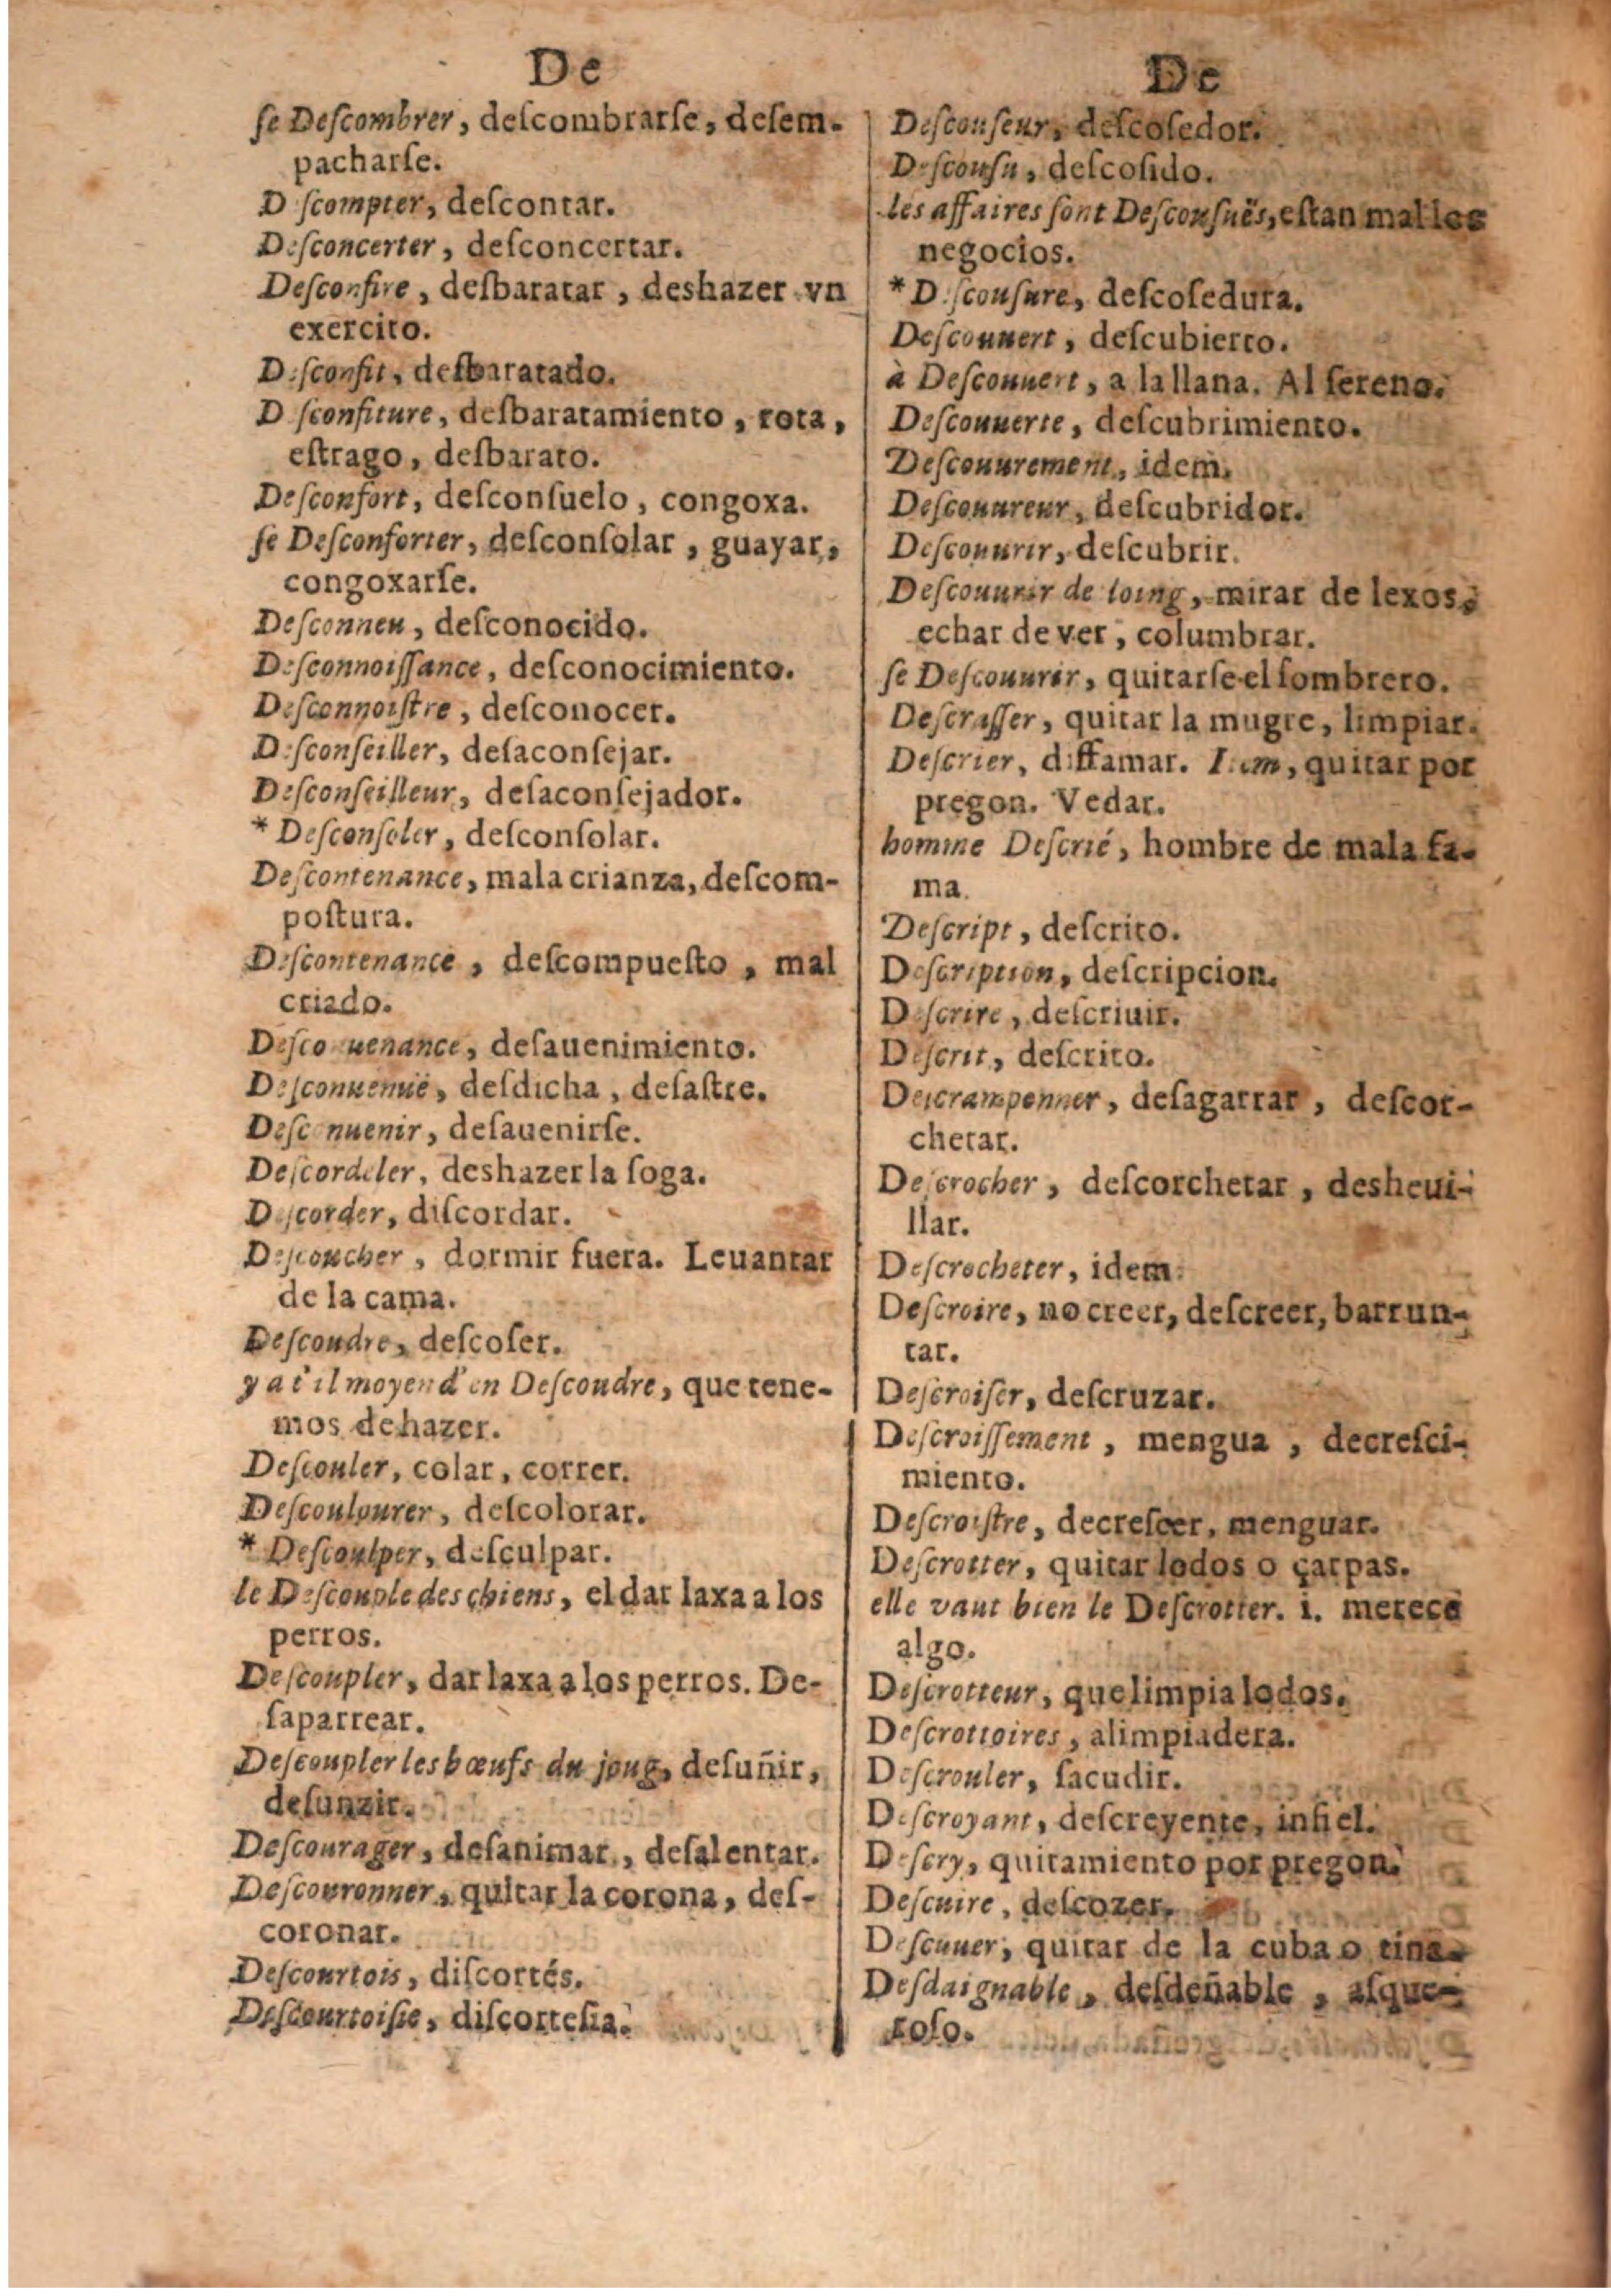 De
ſe Deſcombrer, deſcombrarſe, deſem-
pacharſe.
D ſcompter, deſcontar.
Deſconcerter, deſconcertar.
Deſconfire, deſbaratar, deshazer vn
exercito.
Deſconfit, deſbaratado.
D ſconfiture, deſbaratamiento, rota,
eſtrago, deſbarato.
Deſconfort, deſconſuelo, congoxa.
ſe Deſconforter, deſconſolar, guayar,
congoxarſe.
Deſconneu, deſconocido.
Deſconnoiſſance, deſconocimiento.
Deſconnoiſtre, deſconocer.
Deſconſeiller, deſaconſejar.
Deſconſeilleur, deſaconſejador.
* Deſconſoler, deſconſolar.
Deſcontenance, mala crianza, deſcom-
poſtura.
Deſcontenance, deſcompueſto, mal
criado.
Deſco uenance, deſauenimiento.
Deſconuenuë, deſdicha, deſaſtre.
Deſc nuenir, deſauenirſe.
Deſcordeler, deshazer la ſoga.
Deſcorder, diſcordar.
Deſcoucher, dormir fuera. Leuantar
de la cama.
Deſcoudre, deſcoſer.
y a t'il moyen d'en Deſcoudre, que tene-
mos de hazer.
Deſcouler, colar, correr.
Deſcoulourer, deſcolorar.
* Deſcoulper, deſculpar.
le Deſcouple des chiens, el dar laxa a los
perros.
Deſcoupler, dar laxa a los perros. De-
ſaparrear.
Deſcoupler les bœufs du joug, deſuñir,
deſunzir.
Deſcourager, deſanimar, deſalentar.
Deſcouronner, quitar la corona, deſ-
coronar.
Deſcourtois, diſcortés.
Deſcourtoiſie, diſcorteſia.
De
Deſcouſeur, deſcoſedor.
Deſcouſu, deſcoſido.
les affaires ſont Deſcouſuës, eſtan mal los
negocios.
* Deſcouſure, deſcoſedura.
Deſcouuert, deſcubierto.
à Deſcouuert, a la llana. Al ſereno.
Deſcouuerte, deſcubrimiento.
Deſcouurement, idem.
Deſcouureur, deſcubridor.
Deſcouurir, deſcubrir.
Deſcouurir de loing, mirar de lexos,
echar de ver, columbrar.
ſe Deſcouurir, quitarſe el ſombrero.
Deſcraſſer, quitar la mugre, limpiar.
Deſcrier, diffamar. Item, quitar por
pregon. Vedar.
homme Deſcrié, hombre de mala fa-
ma.
Deſcript, deſcrito.
Deſcription, deſcripcion.
Deſcrire, deſcriuir.
Deſcrit, deſcrito.
Deſcrampenner, deſagarrar, deſcor-
chetar.
Deſcrocher, deſcorchetar, desheui-
llar.
Deſcrocheter, idem.
Deſcroire, no creer, deſcreer, barrun-
tar.
Deſcroiſer, deſcruzar.
Deſcroiſſement, mengua, decreſci-
miento.
Deſcroiſtre, decreſcer, menguar.
Deſcrotter, quitar lodos o çarpas.
elle vaut bien le Deſcrotter. i. merece
algo.
Deſcrotteur, que limpia lodos.
Deſcrottoires, alimpiadera.
Deſcrouler, ſacudir.
Deſcroyant, deſcreyente, infiel.
Deſcry, quitamiento por pregon.
Deſcuire, deſcozer.
Deſcuuer, quitar de la cuba o tina.
Deſdaignable, deſdeñable, aſque-
roſo.